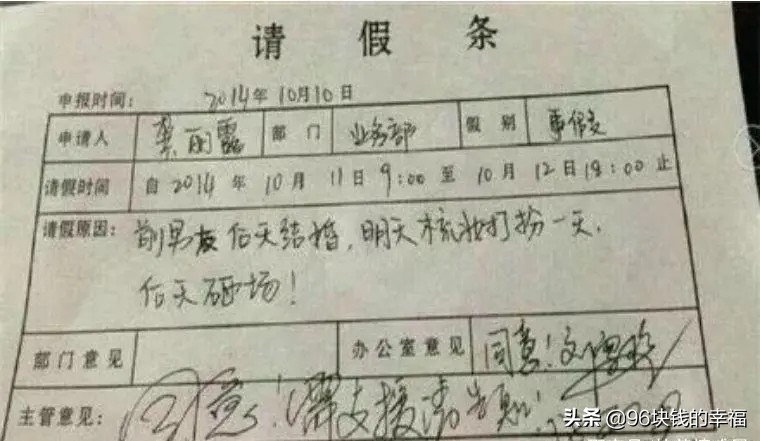 请 假 条
申报时间: 2014年10月10日
申请人 龚丽霞 部 门 业务部 假 别 事假
请假时间 自2014年10月11日9:00至10月12日18:00止
请假原因: 前男友后天结婚,明天梳妆打扮一天.
后天砸场!
部门意见 办公室意见 同意!
主管意见: 同意!需支援请告知!
头条 @96块钱的幸福